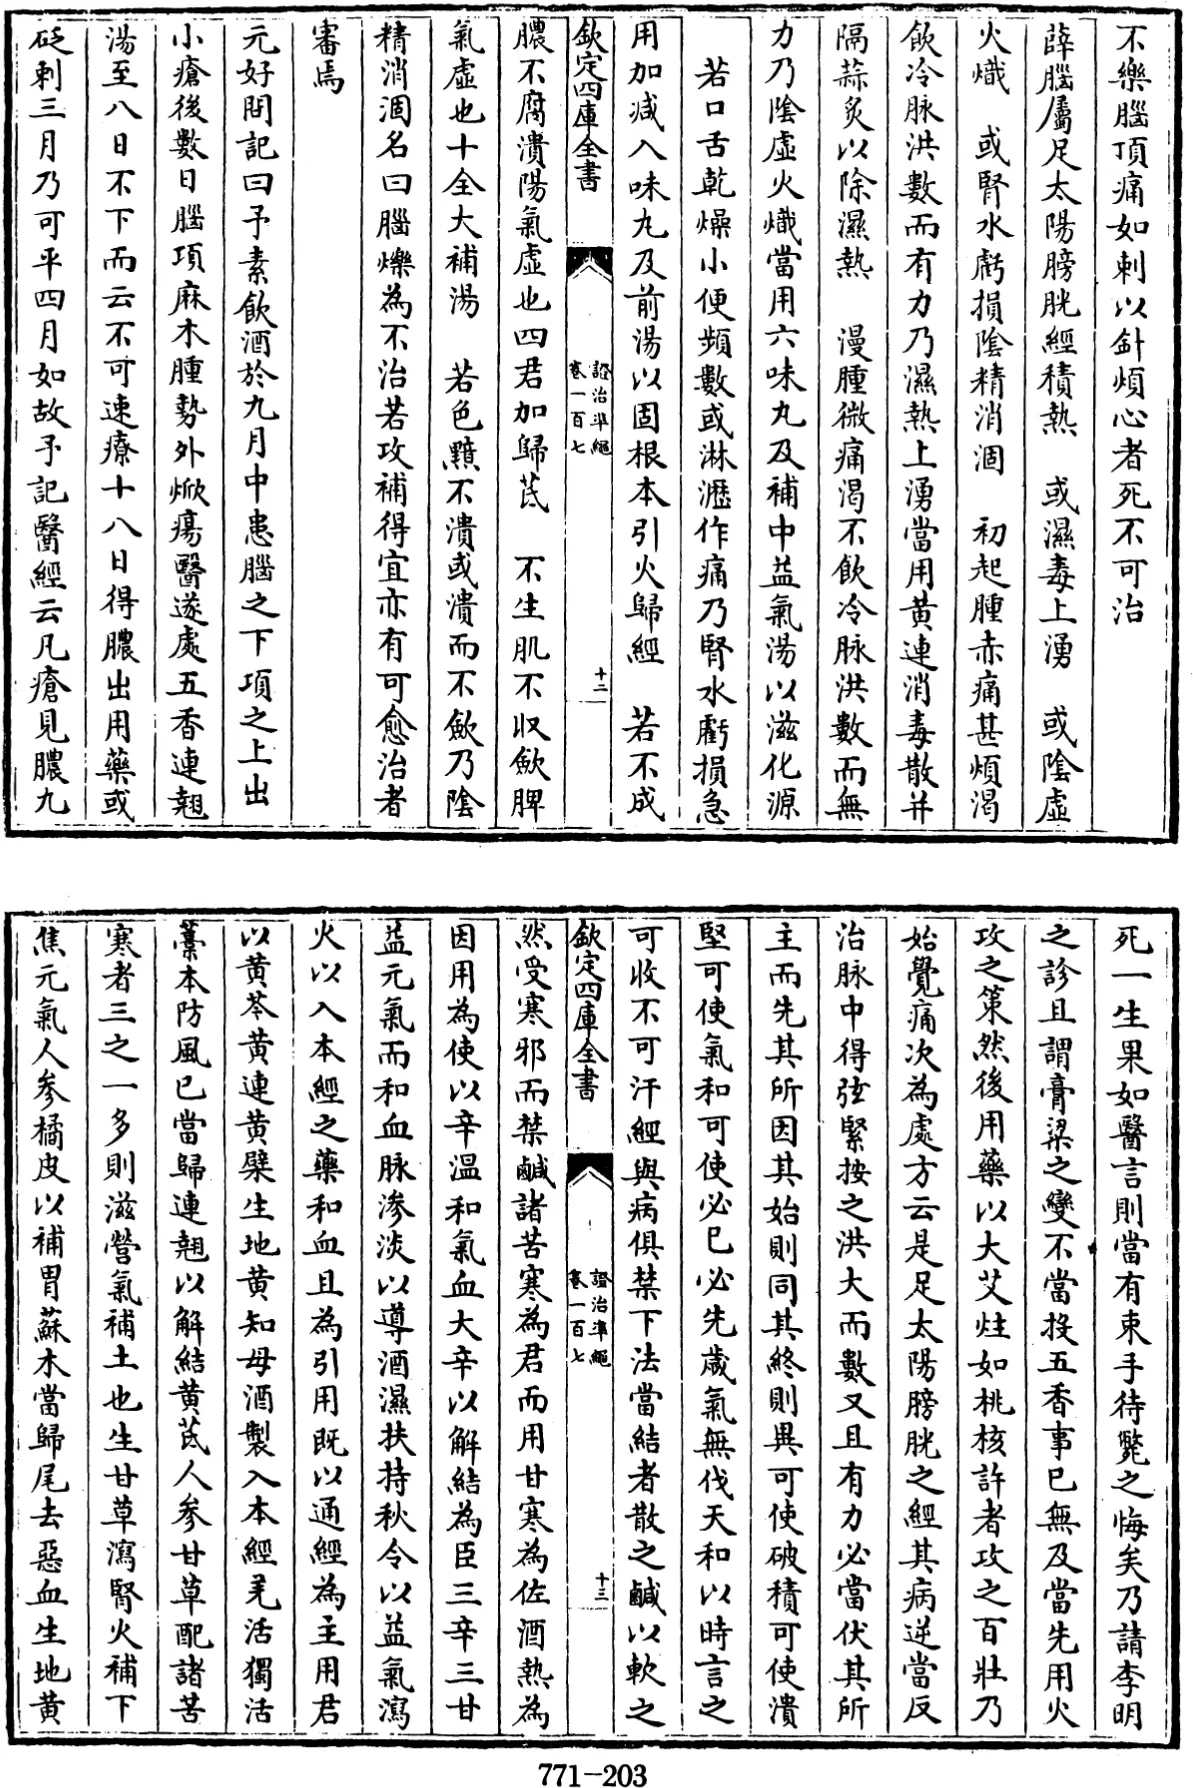 不樂腦頂痛如刺以針煩心者死不可治
薛腦屬足太陽膀胱經積熱　或濕毒上湧　或陰虛
火熾　或腎水虧損陰精消涸　初起腫赤痛甚煩渴
飲冷脉洪數而有力乃濕熱上湧當用黃連消毒散并
隔蒜灸以除濕熱　漫腫微痛渴不飲冷脉洪數而無
力乃陰虛火熾當用六味丸及補中益氣湯以滋化源
若口舌乾燥小便頻數或淋瀝作痛乃腎水虧損急
用加减入味丸及前湯以固根本引火歸經　若不成
欽定四庫全書
證治準繩
卷一百七
十二
膿不腐潰陽氣虛也四君加歸芪　不生肌不収歛脾
氣虛也十全大補湯　若色黯不潰或潰而不歛乃陰
精消涸名曰腦爍為不治若攻補得宜亦有可愈治者
審焉
元好問記曰予素飲酒於九月中患腦之下項之上出
小瘡後數日腦項麻木腫勢外焮瘍醫遂處五香連翹
湯至八日不下而云不可速療十八日得膿出用藥或
砭刺三月乃可平四月如故予記醫經云凡瘡見膿九
死一生果如醫言則當有束手待斃之悔矣乃請李明
之診且謂膏粱之變不當投五香事已無及當先用火
攻之策然後用藥以大艾炷如桃核許者攻之百壯乃
始覺痛次為處方云是足太陽膀胱之經其病逆當反
治脉中得弦緊按之洪大而數又且有力必當伏其所
主而先其所因其始則同其終則異可使破積可使潰
堅可使氣和可使必已必先歲氣無伐天和以時言之
可收不可汗經與病俱禁下法當結者散之鹹以軟之
欽定四庫全書
證治準繩
卷一百七
十三
然受寒邪而禁鹹諸苦寒為君而用甘寒為佐酒熱為
因用為使以辛溫和氣血大辛以解結為臣三辛三甘
益元氣而和血脉滲淡以導酒濕扶持秋令以益氣瀉
火以入本經之藥和血且為引用既以通經為主用君
以黃芩黃連黃蘗生地黃知母酒製入本經羌活獨活
藁本防風已當歸連翹以解結黃芪人參甘草配諸苦
寒者三之一多則滋營氣補土也生甘草瀉腎火補下
焦元氣人參橘皮以補胃蘇木當歸尾去惡血生地黃
771-203